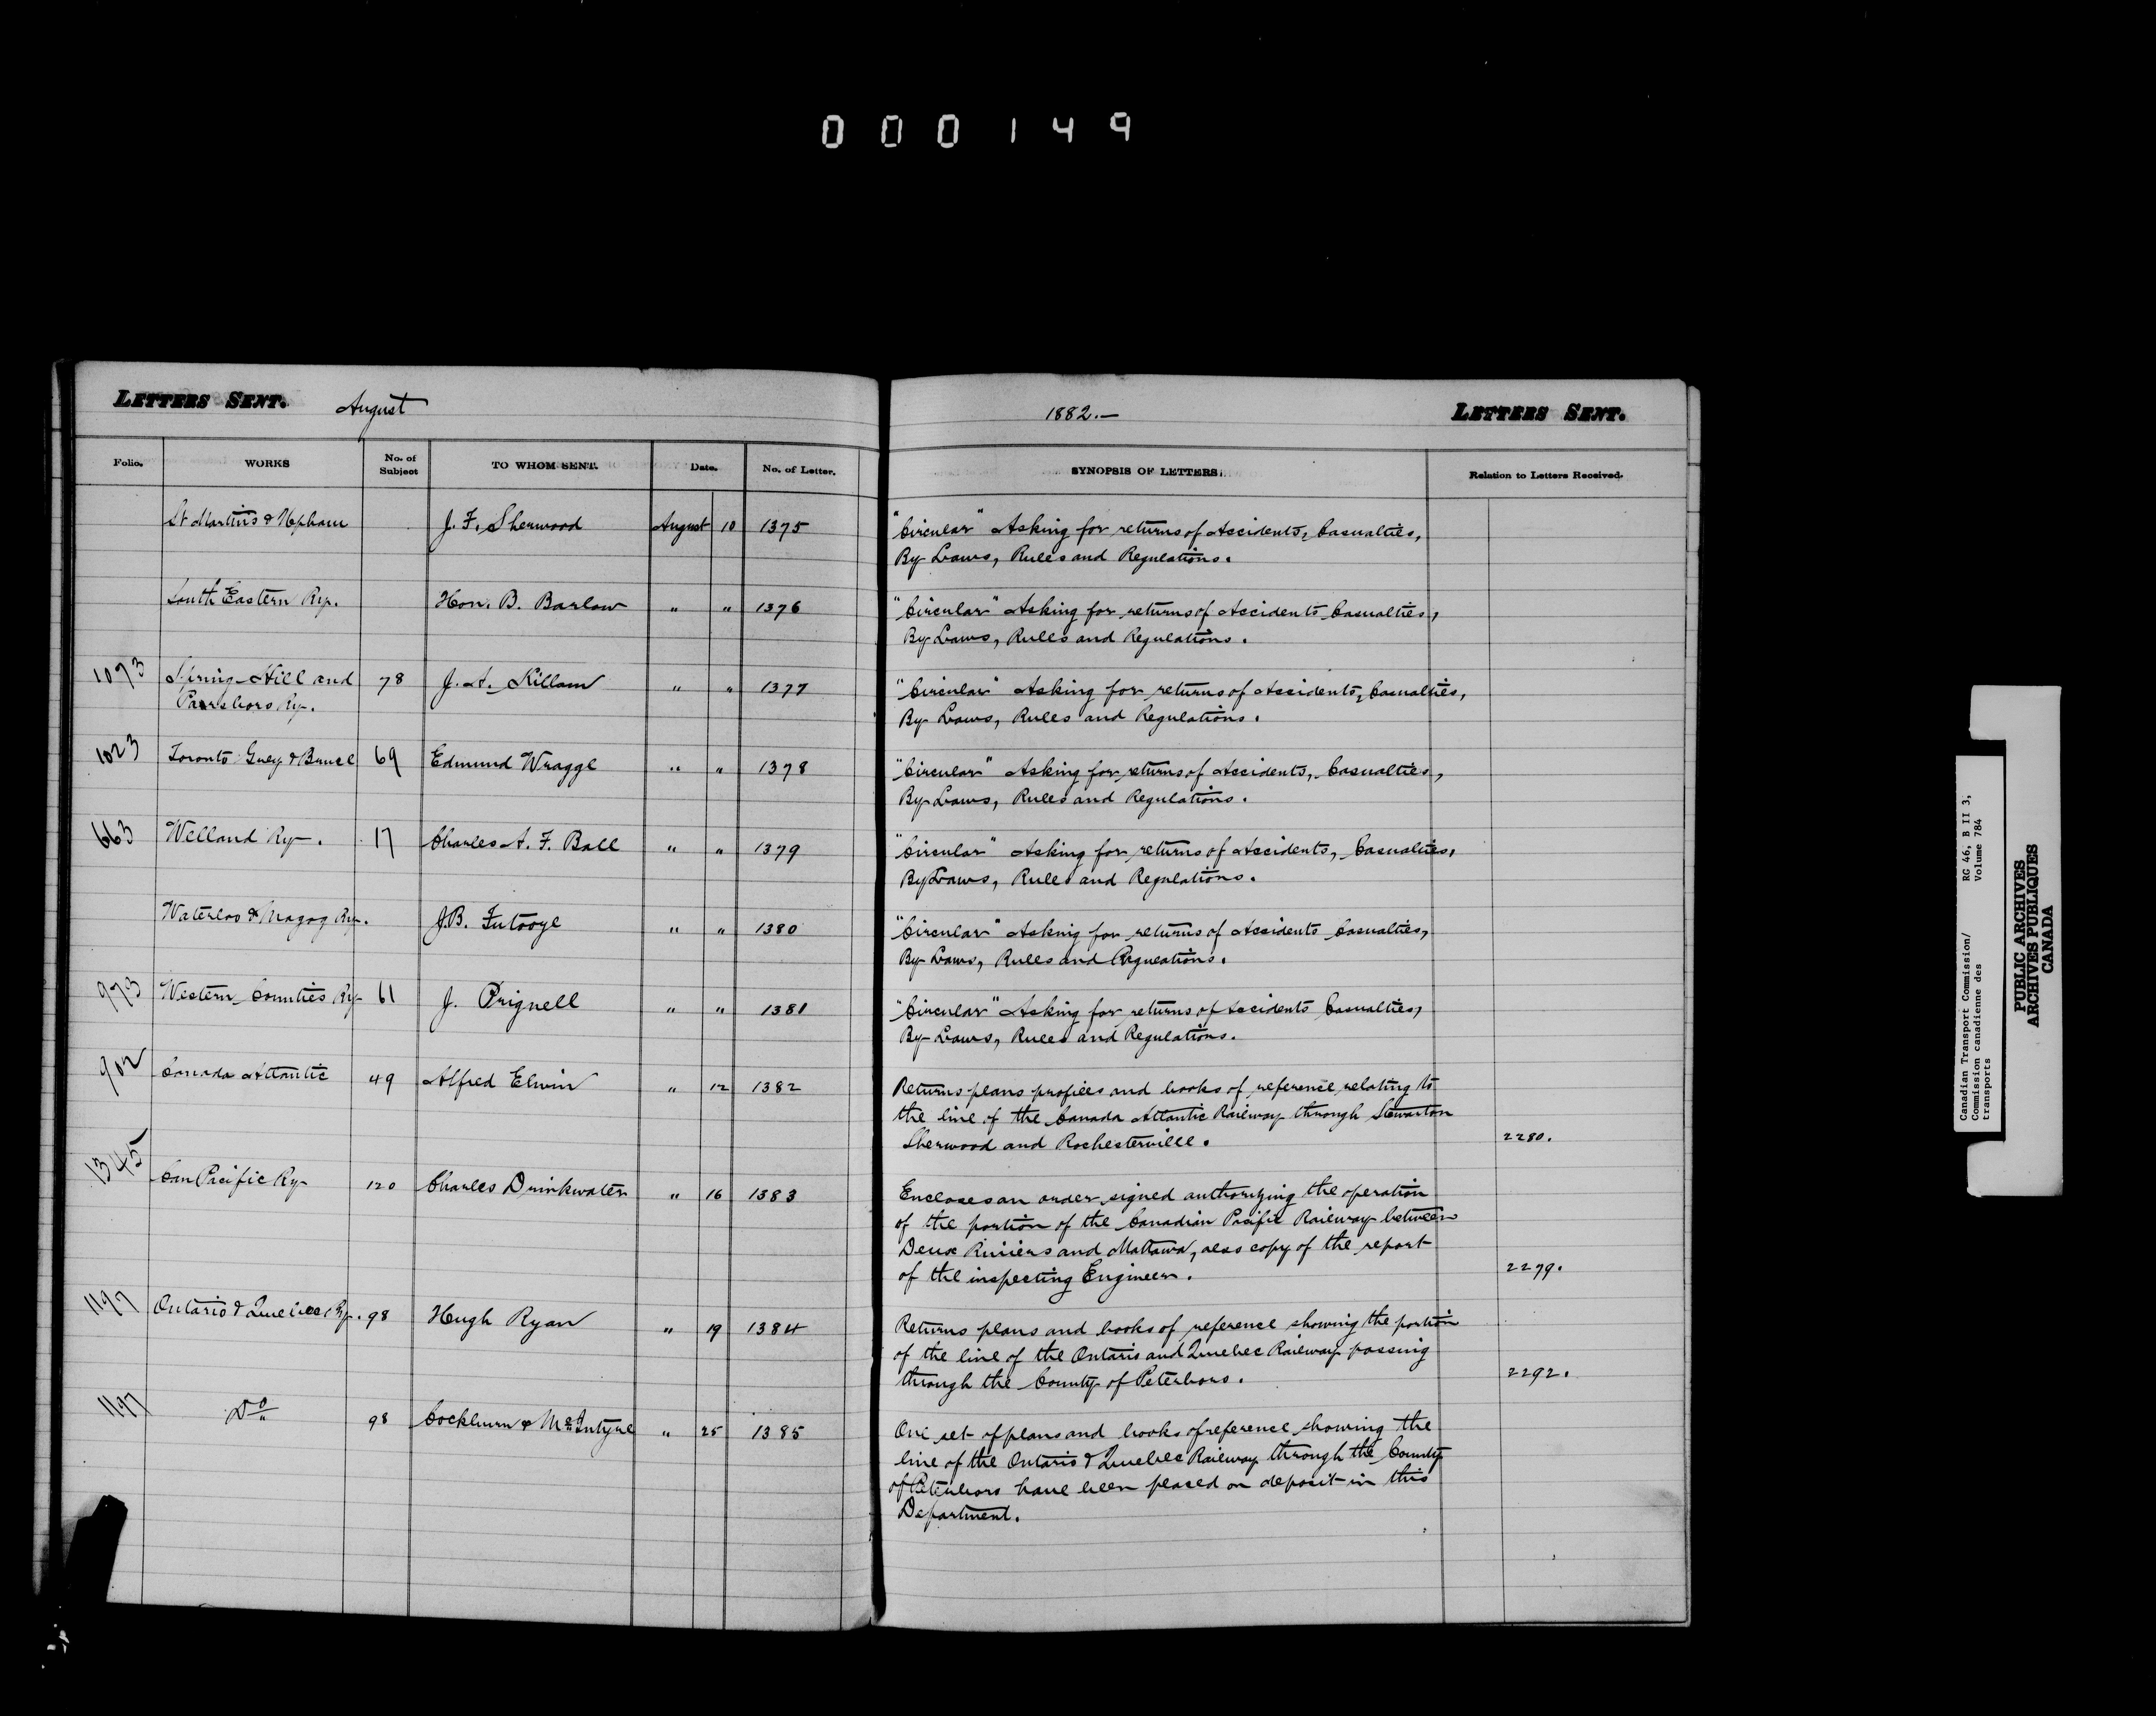 000149
LETTERS SENT. August
1882.—
LETTERS SENT.
Folio. WORKS No. of Subject TO WHOM SENT. Date. No. of Letter.
SYNOPSIS OF LETTERS. Relation to Letters Received.
St Martins & Upham J. F. Sherwood August 10 1375 "Circular" Asking for returns of Accidents, Casualties,
By Laws, Rules and Regulations.
South Eastern Ry. Hon. B. Barlow " " 1376 "Circular" Asking for returns of Accidents Casualties,
By Laws, Rules and Regulations.
1073 Spring Hill and 78 J. A. Killam " " 1377 "Circular" Asking for returns of Accidents, Casualties,
Parrsboro Ry. By Laws, Rules and Regulations.
1023 Toronto Grey & Bruce 69 Edmund Wragge " " 1378 "Circular" Asking for returns of Accidents, Casualties,
By Laws, Rules and Regulations.
663 Welland Ry. 17 Charles A. F. Ball " " 1379 "Circular" Asking for returns of Accidents, Casualties,
By Laws, Rules and Regulations.
Waterloo & Magog Ry. J.B. " " 1380 "Circular" Asking for returns of Accidents Casualties,
By Laws, Rules and Regulations.
973 Western Counties Ry 61 J. Brignell " " 1381 "Circular" Asking for returns of Accidents Casualties,
By Laws, Rules and Regulations.
902 Canada Atlantic 49 Alfred Elwin " 12 1382 Returns plans profiles and books of reference relating to
the line of the Canada Atlantic Railway through Stewarton
Sherwood and Rochesterville. 2280.
1345 Can Pacific Ry 120 Charles Drinkwater " 16 1383 Encloses an order signed authorizing the operation
of the portion of the Canadian Pacific Railway between
Deux Rivièrs and Mattawa, also copy of the report
of the inspecting Engineer. 2279.
1197 Ontario & Quebec Ry. 98 Hugh Ryan " 19 1384 Returns plans and books of reference showing the portion
of the line of the Ontario and Quebec Railway passing
through the County of Peterboro. 2292.
1197 Do 98 Cockburn & McIntyre " 25 1385 One set of plans and books of reference showing the
line of the Ontario & Quebec Railway through the County
of Peterboro have been placed on deposit in this
Department.
Canadian Transport Commission/ RG 46, B II 3,
Commission canadienne des Volume 784
transports
PUBLIC ARCHIVES
ARCHIVES PUBLIQUES
CANADA